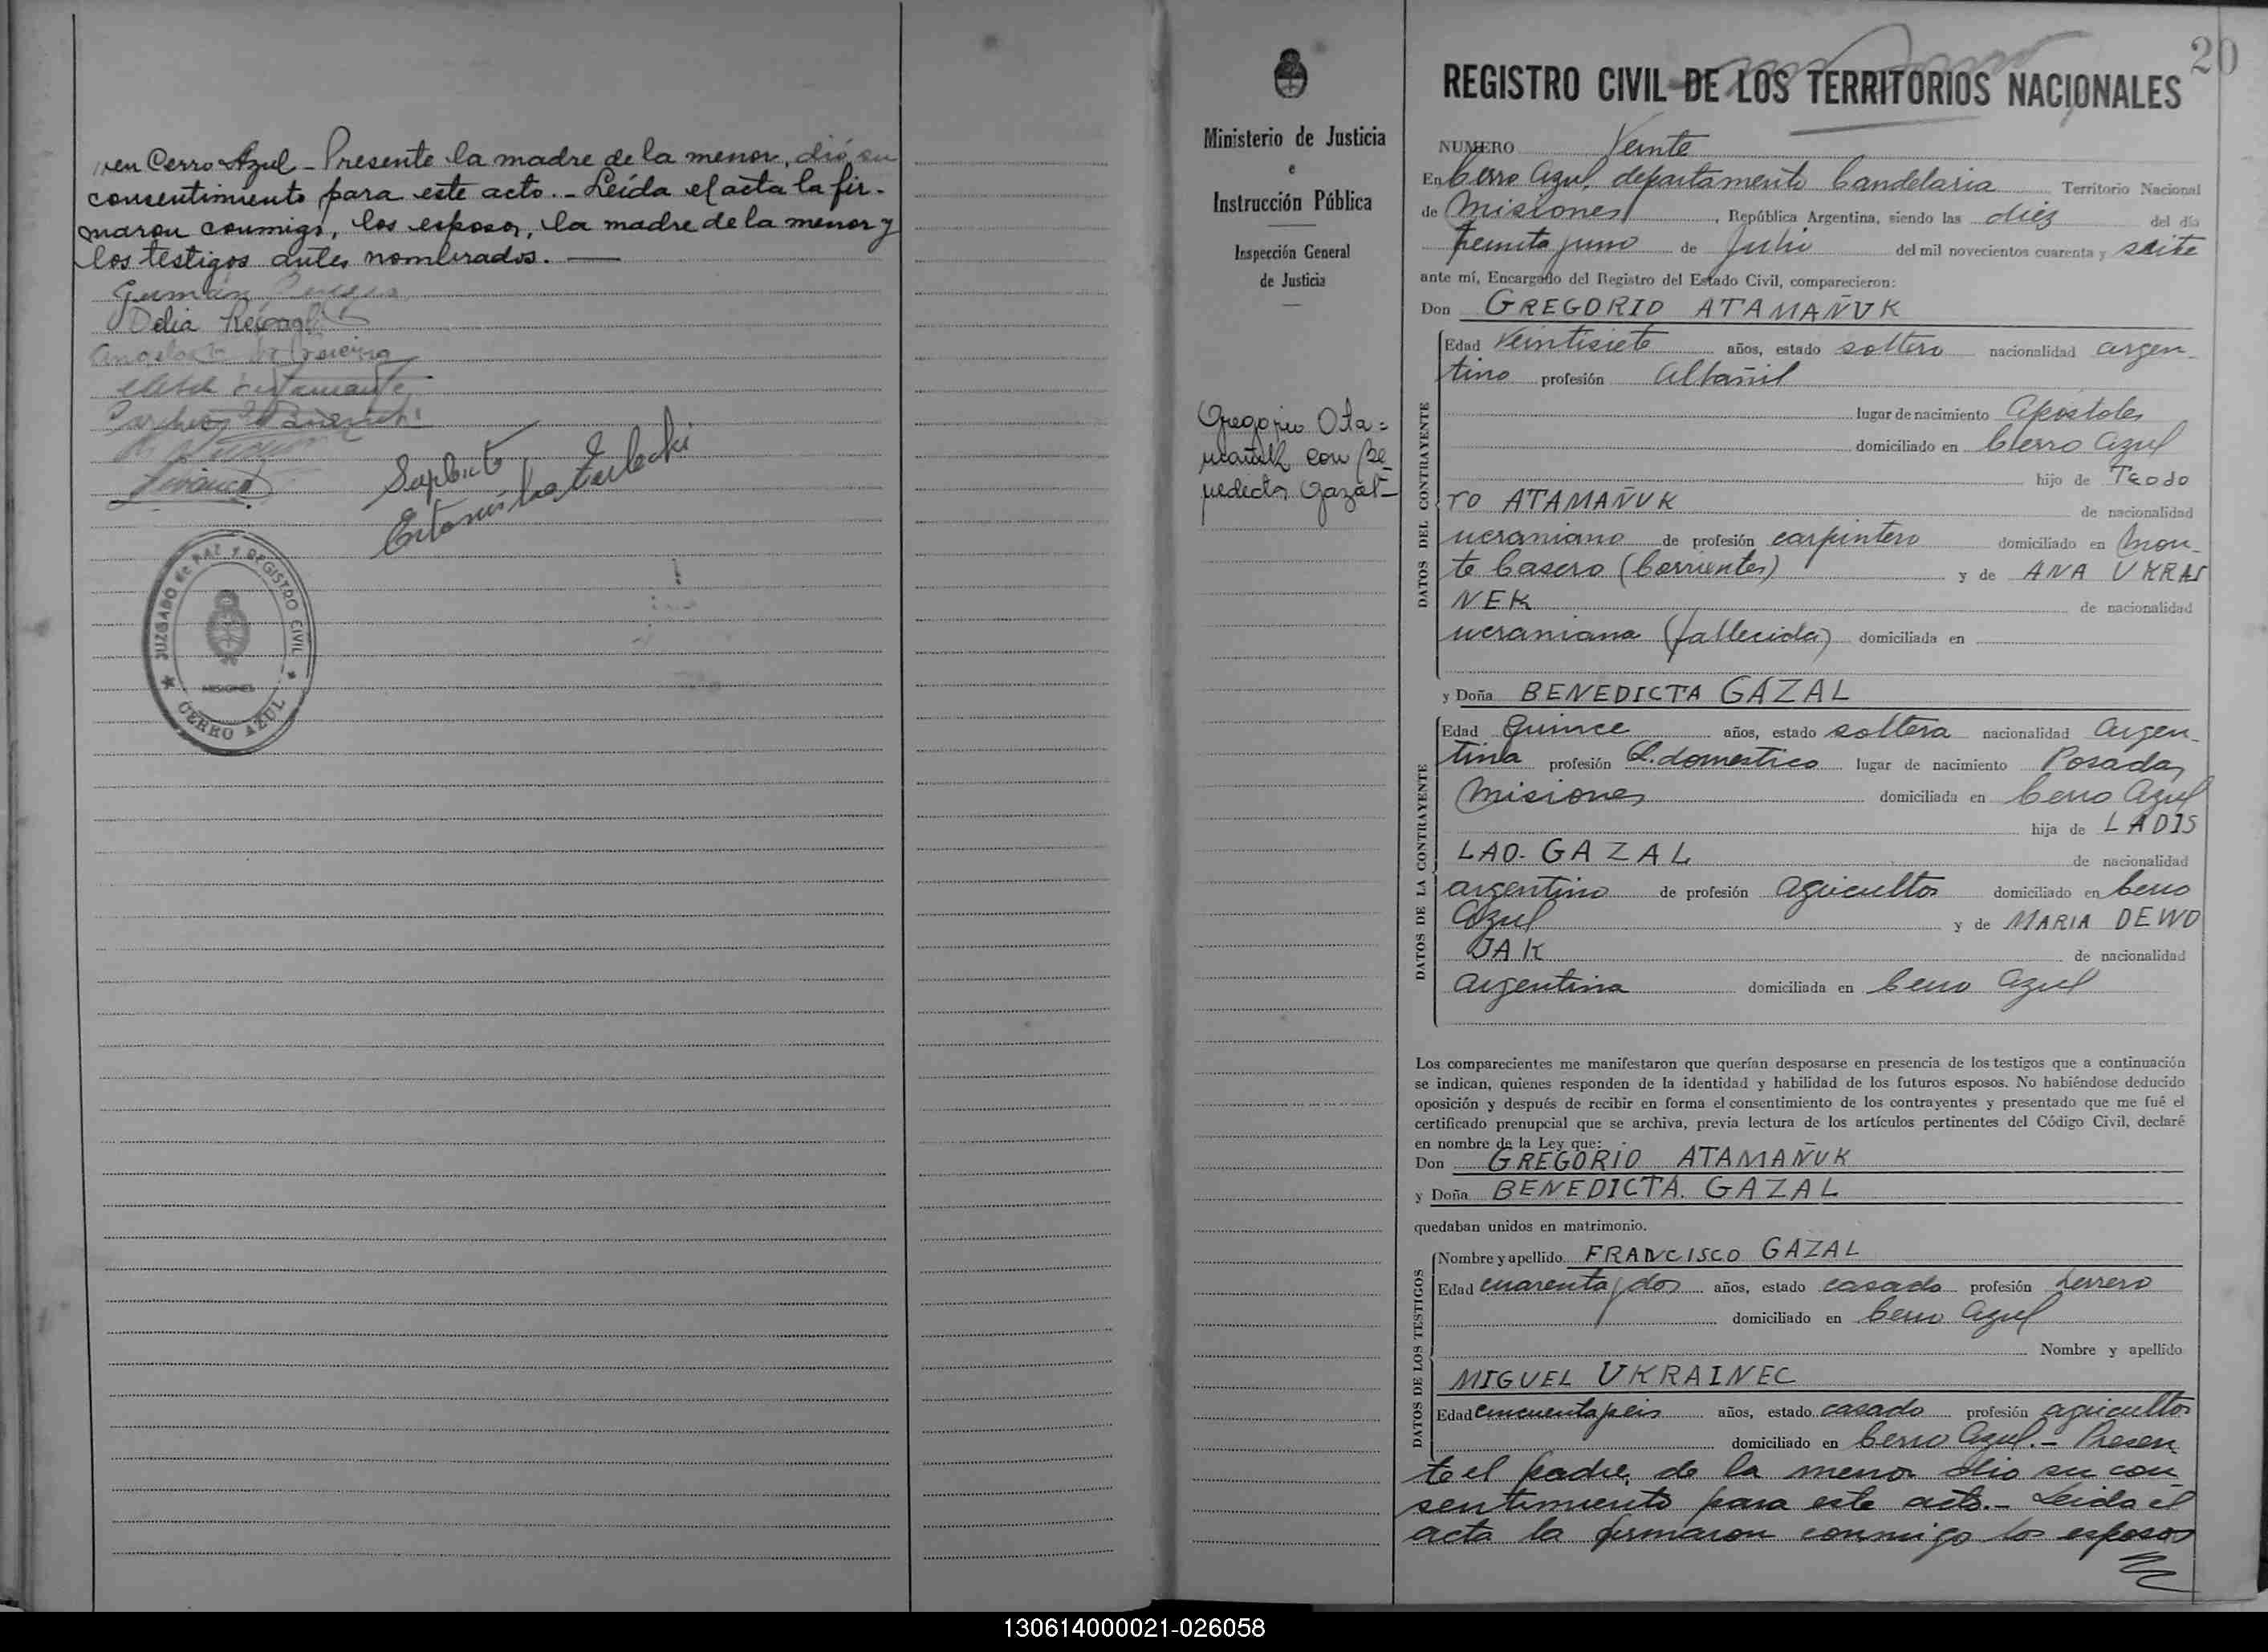 en Cerro Azul - Presente la madre de la menor, dió su
consentimiento para este acto. - Leída el acta la fir-
maron conmigo, los esposos, la madre de la menor y
los testigos antes nombrados. —
Germán
Delia
Suplente
JUZGADO de PAZ Y REGISTRO CIVIL
MISIONES
CERRO AZUL
20
Ministerio de Justicia
e
Instrucción Pública
Inspección General
de Justicia
Gregorio Ata=
mañuk con Be-
nedicta Gazal-
REGISTRO CIVIL DE LOS TERRITORIOS NACIONALES
NUMERO Veinte
En Cerro Azul, departamento Candelaria Territorio Nacional
de Misiones, República Argentina, siendo las diez del día
treinta y uno de Julio del mil novecientos cuarenta y seite
ante mí, Encargado del Registro del Estado Civil, comparecieron:
Don GREGORIO ATAMAÑUK
DATOS DEL CONTRAYENTE
Edad Veintisiete años, estado soltero nacionalidad argen-
tino profesión Albañil
lugar de nacimiento Apostoles
domiciliado en Cerro Azul
hijo de TEODO
RO ATAMAÑUK de nacionalidad
ucraniano de profesión carpintero domiciliado en Mon-
te Casero (Corrientes) y de ANA UKRAI
NEK de nacionalidad
ucraniana (fallecida) domiciliada en
y Doña BENEDICTA GAZAL
DATOS DE LA CONTRAYENTE
Edad Quince años, estado soltera nacionalidad Argen-
tina profesión Q. domestico lugar de nacimiento Posadas
Misiones domiciliada en Cerro Azul
hija de LADIS
LAO. GAZAL de nacionalidad
argentino de profesión agricultor domiciliado en Cerro
Azul y de MARIA DEWO
JAK de nacionalidad
argentina domiciliada en Cerro Azul
Los comparecientes me manifestaron que querían desposarse en presencia de los testigos que a continuación
se indican, quienes responden de la identidad y habilidad de los futuros esposos. No habiéndose deducido
oposición y después de recibir en forma el consentimiento de los contrayentes y presentado que me fué el
certificado prenupcial que se archiva, previa lectura de los artículos pertinentes del Código Civil, declaré
en nombre de la Ley que:
Don GREGORIO ATAMAÑUK
y Doña BENEDICTA. GAZAL
quedaban unidos en matrimonio.
DATOS DE LOS TESTIGOS
Nombre y apellido FRANCISCO GAZAL
Edad cuarenta y dos años, estado casado profesión herrero
domiciliado en Cerro Azul
Nombre y apellido
MIGUEL UKRAINEC
Edad cincuenta y seis años, estado casado profesión agricultor
domiciliado en Cerro Azul. - Presen
te el padre, de la menor dio su con
sentimiento para este acto. - Leida el
acta la firmaron conmigo los esposos
130614000021-026058